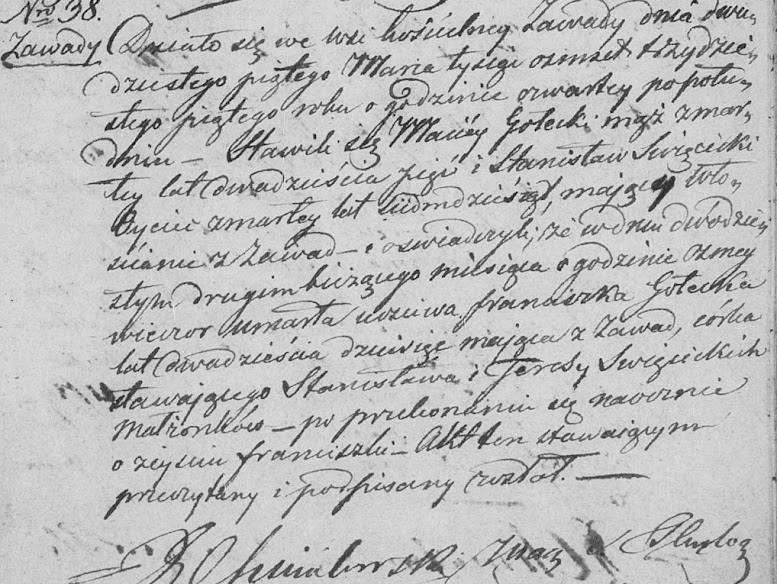 Nro 38.
Zawady Działo się we wsi kościelney Zawady dnia dwu-
dziestego piątego Marca tysiąc osmset trzydzie-
stego piątego roku o godzinie czwartey popołu-
dniu — Stawili się Maciéy Gołecki mąż zmar-
łey lat dwadzieścia pięć i Stanisław Swięcicki
Oyciec zmarłey lat siedmdziesiąt, mający wło-
ścianie z Zawad — i oswiadczyli, że w dniu dwudzie-
stym drugim bieżącego miesiąca o godzinie osmey
wieczor umarła uczciwa franciszka Gołecka
lat dwadzieścia dziewięć maiąca z Zawad, córka
stawaiącego Stanisława i Teresy Swięcickich
małżonków — po przekonaniu się naocznie
o zeyściu franciszki — Akt ten stawaiącym
przeczytany i podpisany został. —